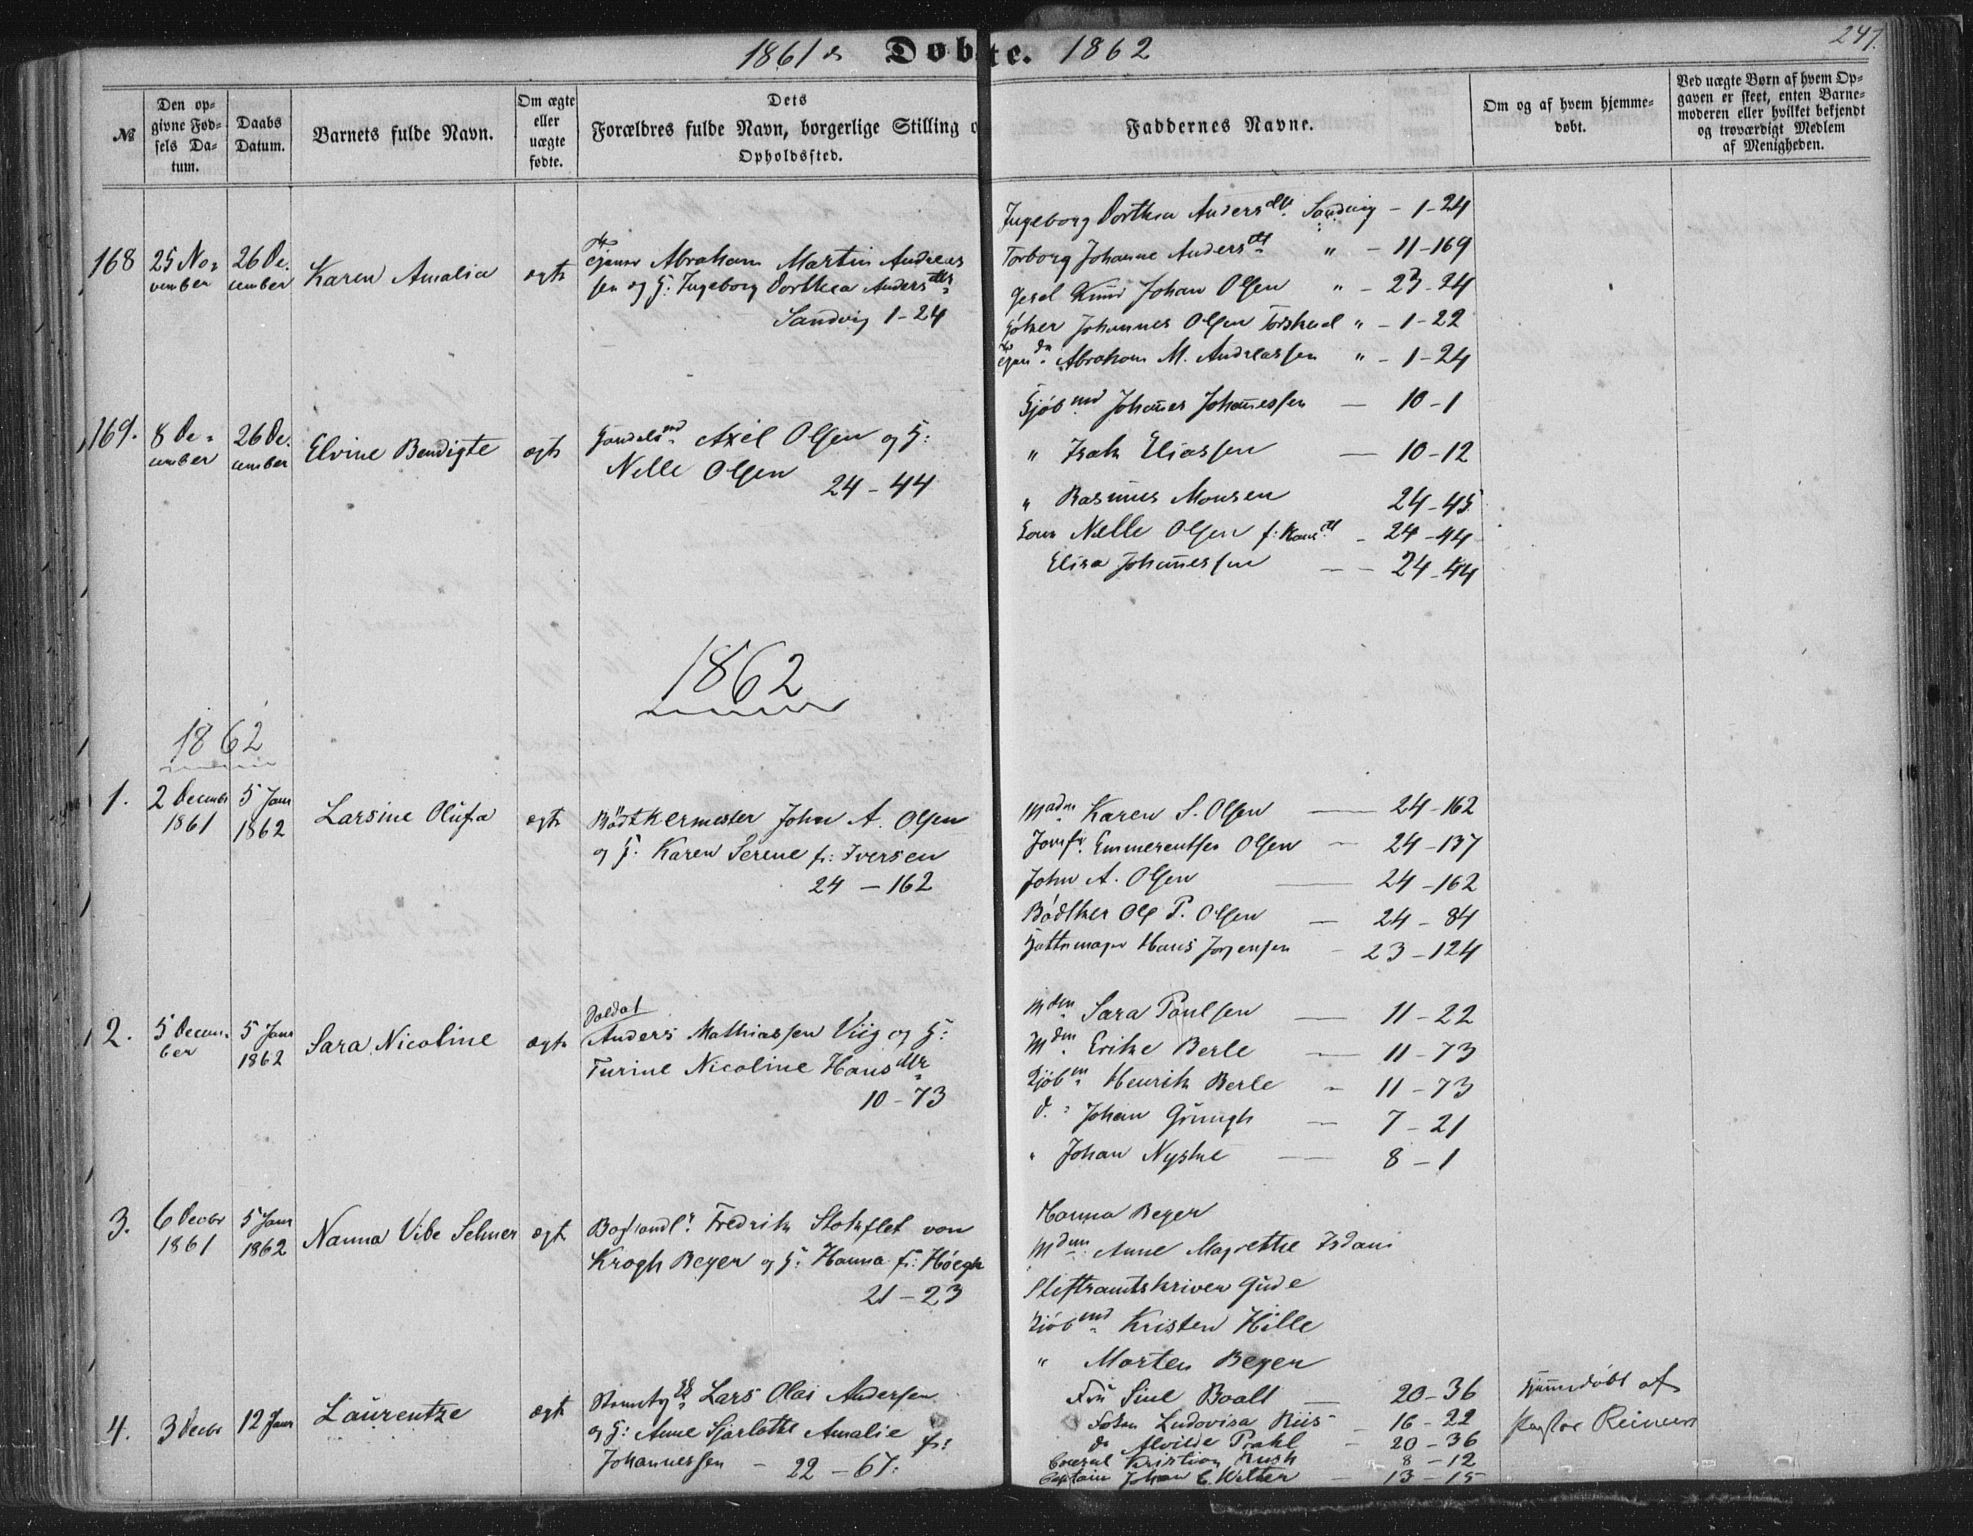 1861 & Døbte. 1862
247.
№
Den op-
givne Fød-
sels Da-
tum.
Daabs
Datum.
Barnets fulde Navn.
Om ægte
eller
uægte
fødte.
Dets
Forældres fulde Navn, borgerlige Stilling o
Opholdssted.
Faddernes Navne.
Om og af hvem hjemme-
døbt.
Ved uægte Børn af hvem Op-
gaven er skeet, enten Barne-
moderen eller hvilket bekjendt
og troværdigt Medlem
af Menigheden.
168
25 No-
vember
26 De-
cember
Karen Amalia
ægte
Abraham Martin Andreas
sen og H: Ingeborg Dorthea Andersdtr
Sandvig 1-24
Ingeborg Dorthea Andersdtr Sandvig - 1-24
Torborg Johanne Andersdtr " - 11-169
Gesel Knud Johan Olsen " - 23-24
Johannes Olsen " - 1-22
Abraham M. Andreassen " - 1-24
169.
8 De-
cember
26 De-
cember
Elvine Bendigte
ægte
Handelsmd Axel Olsen og H:
Nelle Olsen
24-44
Kjøbmd Johannes Johannessen - 10-1
" Isak Eliassen - 10-12
" Rasmus Monsen 24-45
Nelle Olsen f: Hansdtr - 24-44
Elisa Johannessen - - 24-44
1862
1862
1.
2 Decembr
1861
5 Janr
1862
Larsine Olufa
ægte
Bødtkermester John A. Olsen
og H. Karen Serene f: Iversen
24-162
Madm Karen S. Olsen - 24-162
Jomfr. Emmerentse Olsen - 24-137
John A. Olsen - 24-162
Bødtker Ole P. Olsen - 24-84
Hattemager Hans Jørgensen - 23-124
2.
5 Decem-
ber
5 Janr
1862
Sara Nicoline
ægte
Soldat
Anders Mathiassen Viig og H:
Turine Nicoline Hansdtr
10-73
Mdm Sara Paulsen - 11-22
Mdm Erikke Berle - 11-73
Kjøbm Henrik Berle - 11-73
d. Johan Grungh - 7-21
" Johan Nyske - 8-1
3.
6 Decbr
1861
5 Janr
1862
Nanna Vibe Selmer
ægte
Boghandlr Fredrik Stokflet von
Krogh Beyer og H. Hanna f: Høegh
21-23
Hanna Beyer
Mdm Anne Magrethe Isdani
Stiftsamtskriver Gude
Kjøbmd Kristen Hille
" Morten Beyer
4.
3 Decbr
12 Janr
Laurentze
ægte
Lars Olai Andersen
og H: Anne Sjarlotte Amalie f:
Johannessen - 22-67.
Fru Sine Boalt - 20-36
Ludovisa Riis - 16-22
do Alvilde Prahl - 20-36
Consul Kristian Rush 8-12
Captain Johan C. Welter - 13-15
Hjemmedøbt af
Pastor Reimers